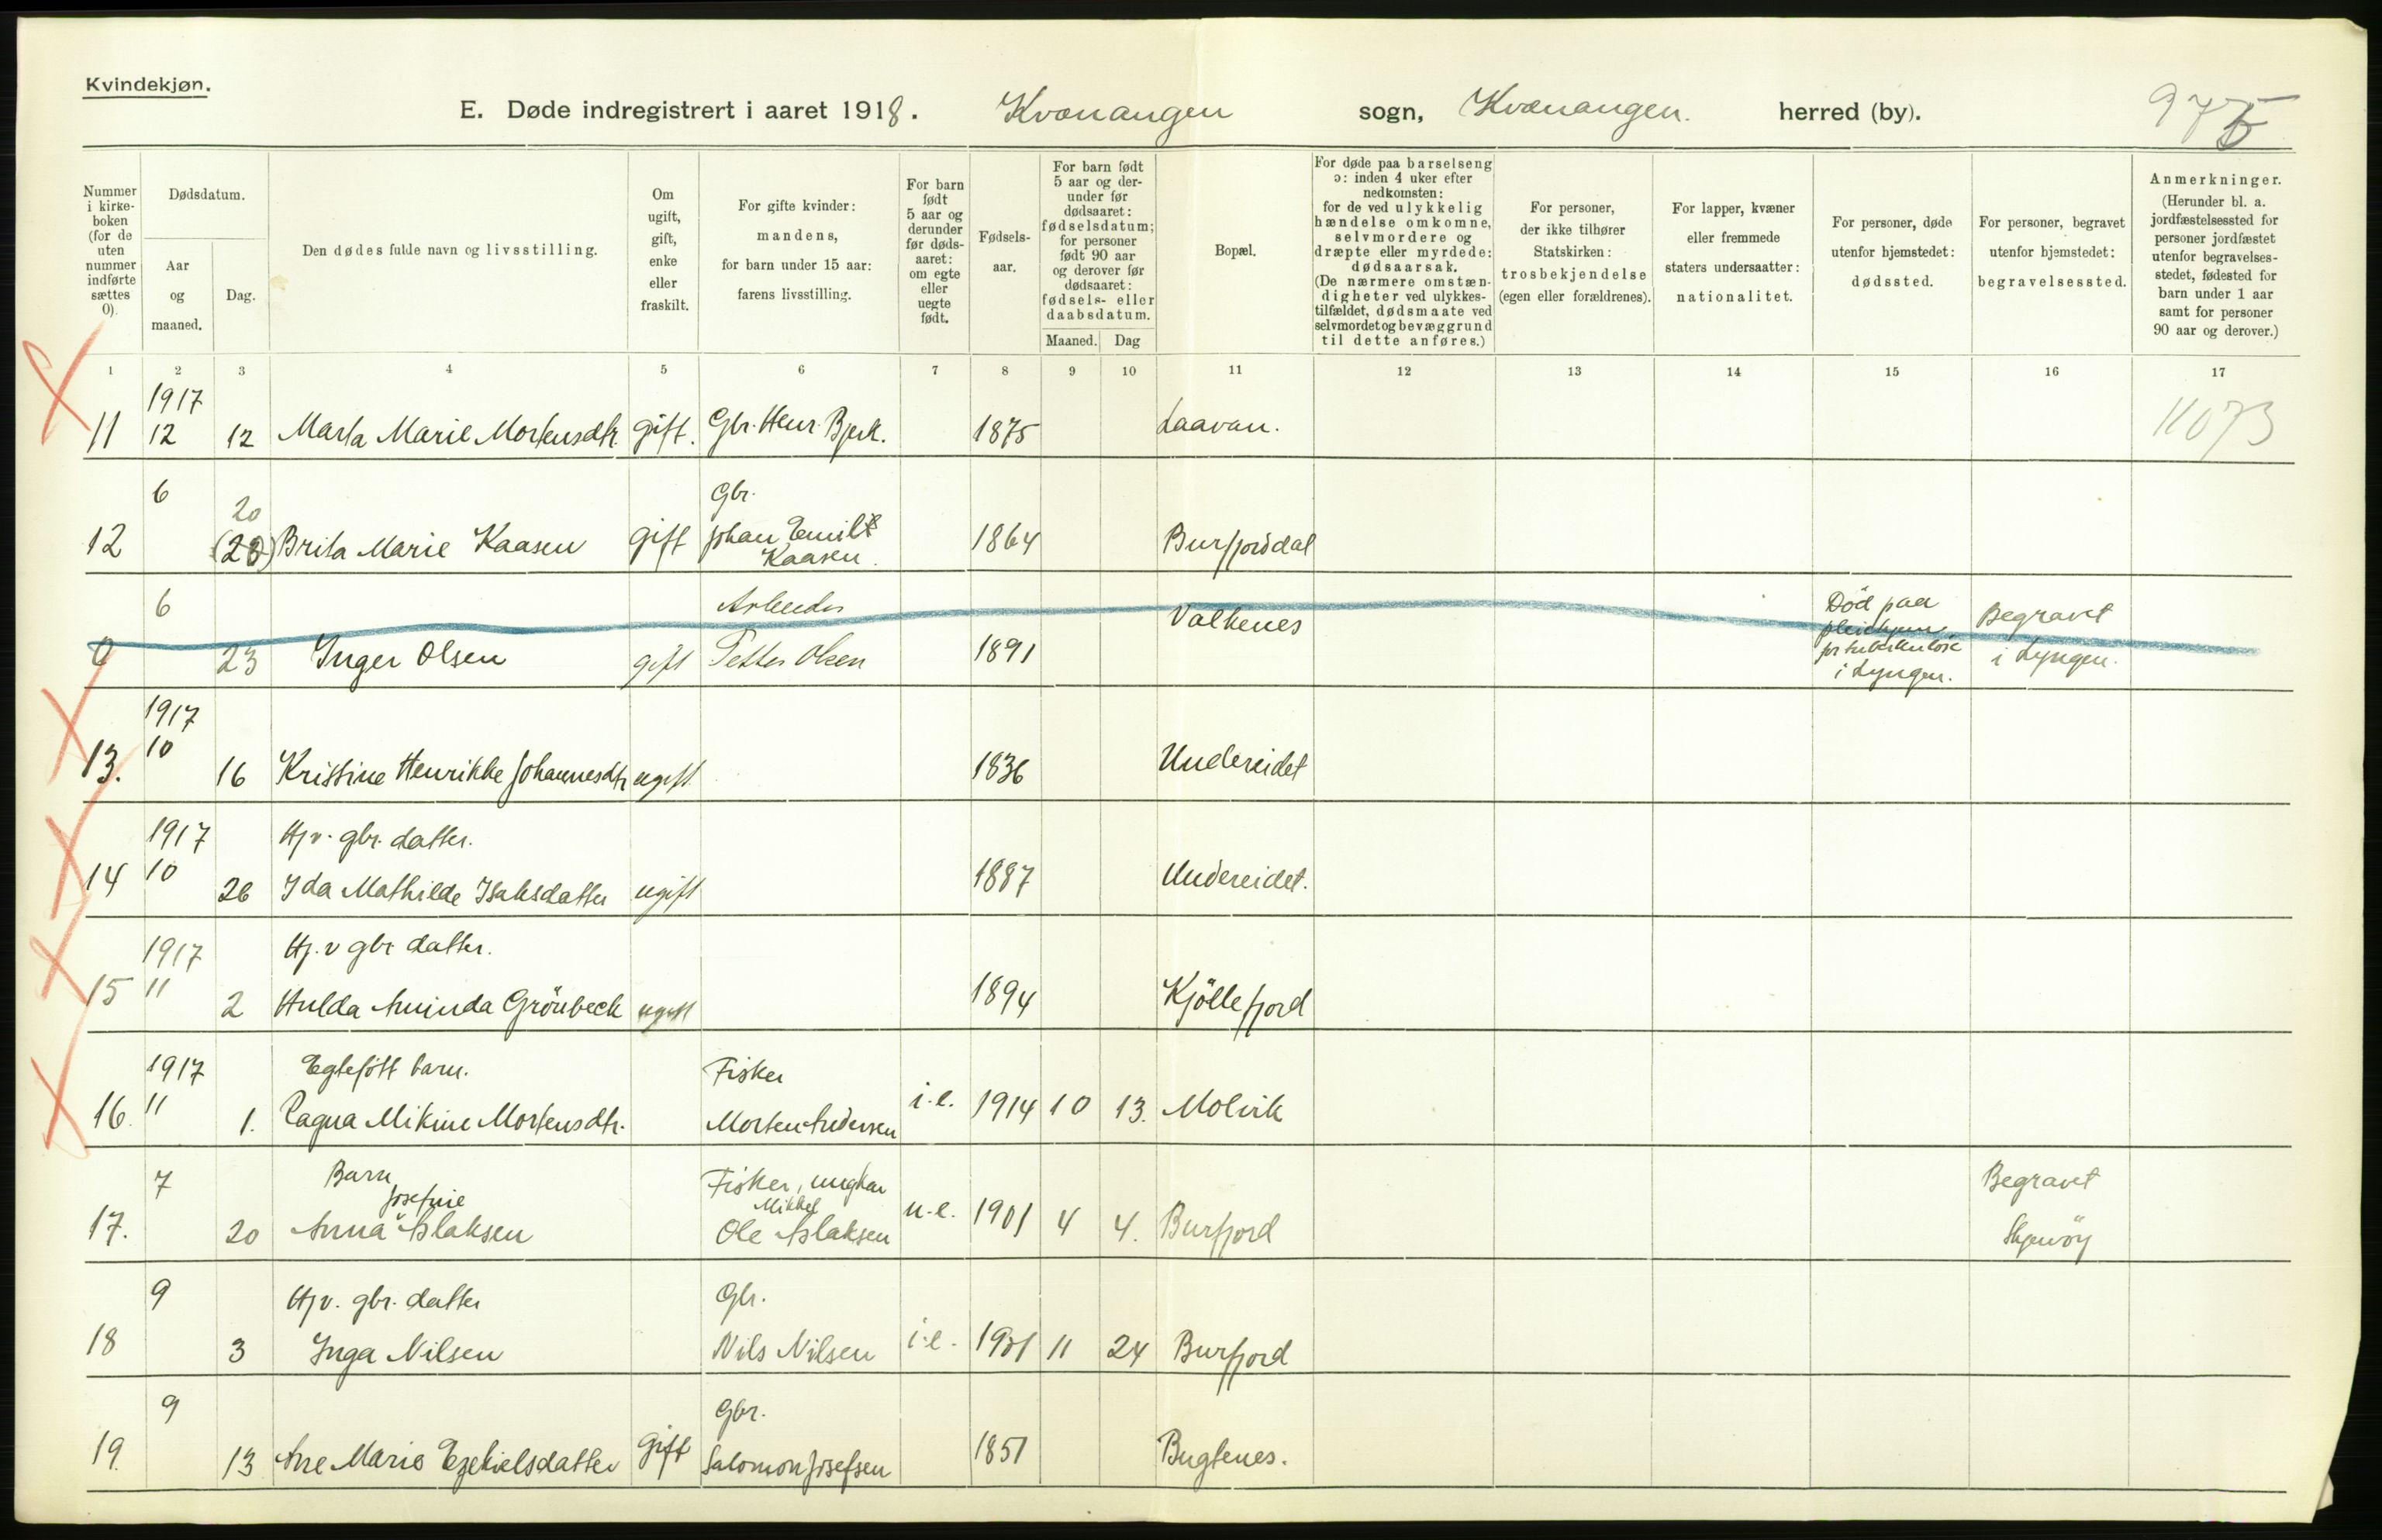 Kvindekjøn.
E. Døde indregistrert i aaret 1918. Kvænangen sogn, Kvænangen. herred (by).
975
Nummer i kirke-boken (for de uten nummer indførte sættes 0).
Dødsdatum.
Aar og maaned.
Dag.
Den dødes fulde navn og livsstilling.
Om ugift, gift, enke eller fraskilt.
For gifte kvinder: mandens, for barn under 15 aar: farens livsstilling.
For barn født 5 aar og derunder før døds-aaret: om egte eller uegte født.
Fødsels-aar.
For barn født 5 aar og der-under før dødsaaret: fødselsdatum; for personer født 90 aar og derover før dødsaaret: fødsels- eller daabsdatum.
Maaned. Dag
Bopæl.
For døde paa barselseng ɔ: inden 4 uker efter nedkomsten: for de ved ulykkelig hændelse omkomne, selvmordere og dræpte eller myrdede: dødsaarsak. (De nærmere omstæn-digheter ved ulykkes-tilfældet, dødsmaate ved selvmordet og bevæggrund til dette anføres.)
For personer, der ikke tilhører Statskirken: trosbekjendelse (egen eller forældrenes).
For lapper, kvæner eller fremmede staters undersaatter: nationalitet.
For personer, døde utenfor hjemstedet: dødssted.
For personer, begravet utenfor hjemstedet: begravelsessted.
Anmerkninger. (Herunder bl. a. jordfæstelsessted for personer jordfæstet utenfor begravelses-stedet, fødested for barn under 1 aar samt for personer 90 aar og derover.)
1 2 3 4 5 6 7 8 9 10 11 12 13 14 15 16 17
1917
11 12 12 Marta Marie Mortensdtr. gift. Gbr. Henr. Bjerk. 1875 Laavan. 11073
6 20 Gbr.
12 (23) Brita Marie Kaasen gift Johan Emil Kaasen. 1864 Burfjorddal
6 Arbeider Valkenes Død paa Begravet
0 23 Inger Olsen gift Petter Olsen 1891 for tuberkuløse i Lyngen. i Lyngen.
1917
13. 10 16 Kristine Henrikke Johannesdtr ugift 1836 Undereidet
1917 Hjv. gbr. datter.
14 10 26 Ida Mathilde Isaksdatter ugift 1887 Undereidet.
1917 Hj. v gbr datter.
15 11 2 Hulda Aminda Grönbeck ugift 1894 Kjöllefjord
1917 Egtefött barn. Fisker
16. 11 1. Ragna Mikine Mortensdtr. Morten Andersen i.e. 1914 10 13. Molvik
7 Barn Fisker, ungkar Begravet
Josefine Mikkel
17. 20 Anna Aslaksen Ole Aslaksen u.e. 1901 4 4. Burfjord Skjervöy
9 Hjv. gbr. datter Gbr.
18 3 Inga Nilsen Nils Nilsen i.e. 1901 11 24 Burfjord
9 Gbr.
19. 13 Ane Marie Ezekielsdatter gift Salomon Josefsen 1851 Bugtenes.